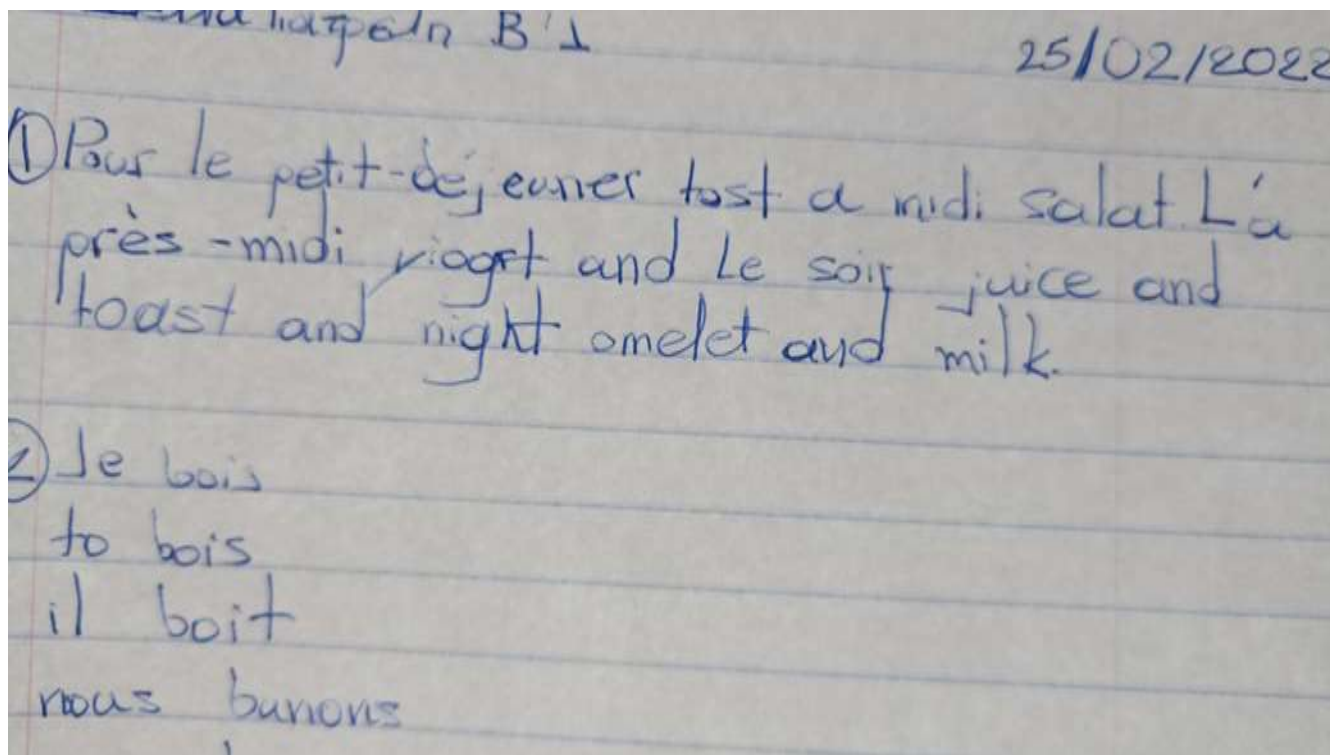 B'1
25/02/2022
① Pour le petit-déjeuner tost a midi salat. L'a
près-midi yiogrt and Le soir juice and
toast and night omelet and milk.
2) Je bois
to bois
il boit
nous bunons